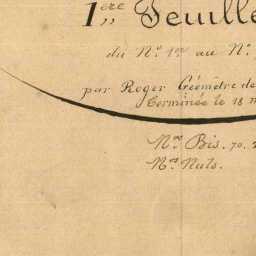 1ère Feuille
du No. 1er au No.
par Roger Géomètre de
Terminée le 18 m
Nos Bis. 70. 2
Nos Nuls.